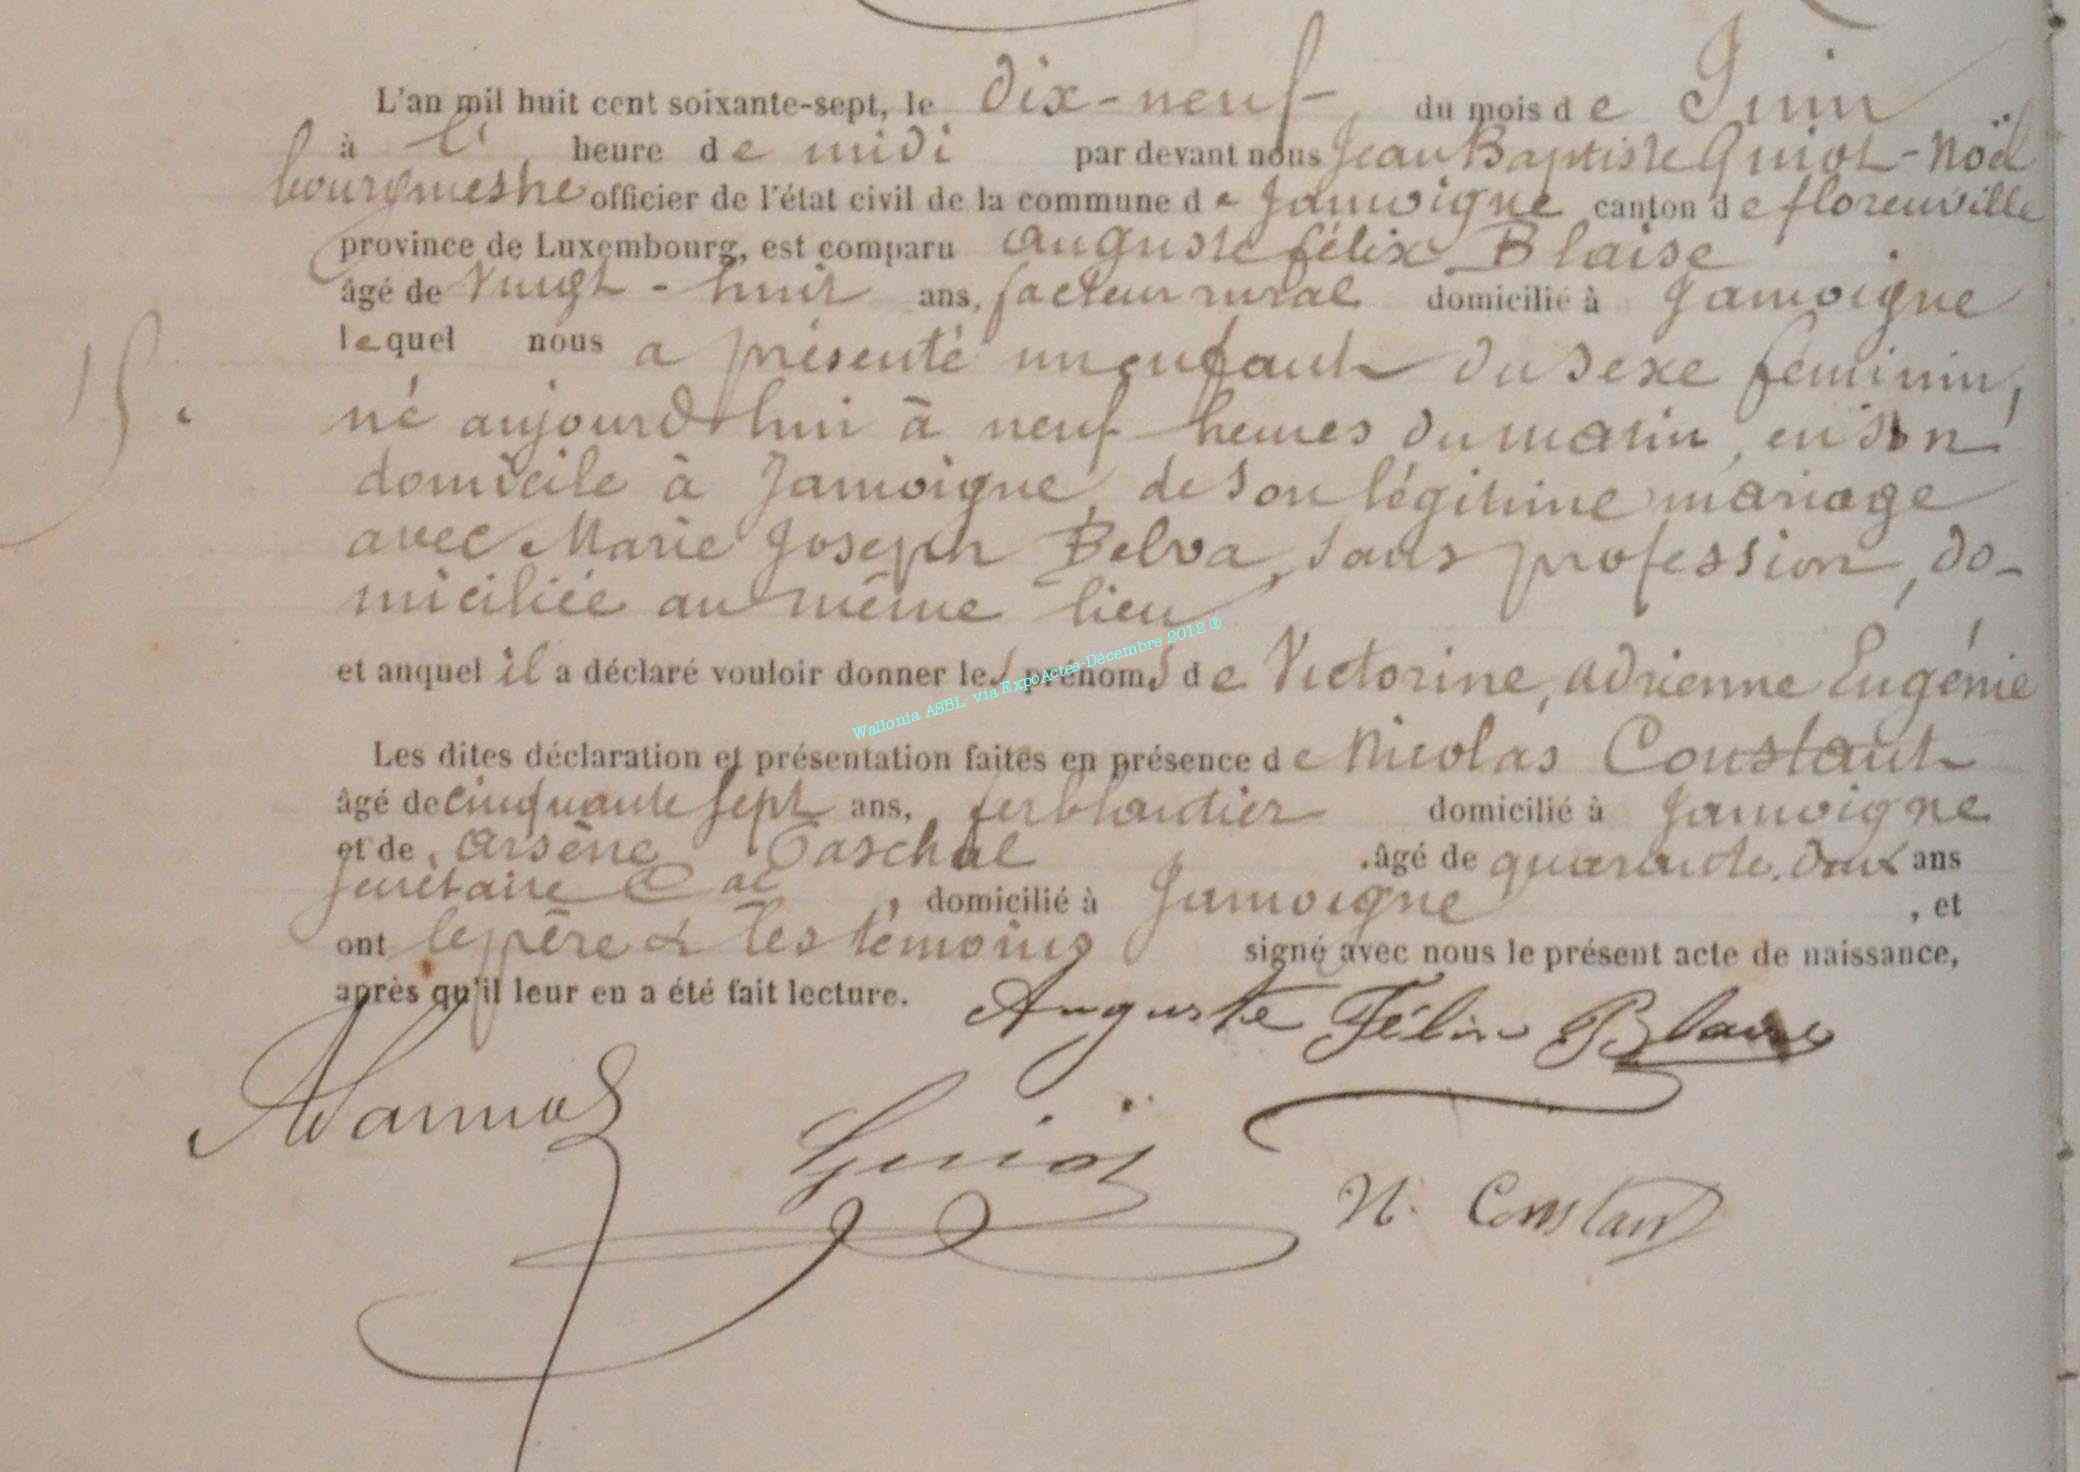 L'an mil huit cent soixante-sept, le dix-neuf du mois de Juin
à l' heure de midi par devant nous Jean Baptiste Guiot-Noël
bourgmestre officier de l'état civil de la commune de Jamoigne canton de florenville
province de Luxembourg, est comparu auguste félix Blaise
âgé de Vingt-huit ans, facteur rural domicilié à Jamoigne
lequel nous a présenté un enfant du sexe féminin,
15.
né aujourd'hui à neuf heures du matin, en son
domicile à Jamoigne, de son légitime mariage
avec Marie Joseph Belva, sans profession, do-
miciliée au même lieu
et auquel il a déclaré vouloir donner les prénoms de Victorine, adrienne Eugénie
Wallonia ASBL via ExpoActes-Décembre 2012 ®
Les dites déclaration et présentation faites en présence de Nicolas Constant
âgé de cinquante sept ans, ferblantier domicilié à Jamoigne
et de arsène Paschal âgé de quarante. deux ans
secrétaire Cal, domicilié à Jamoigne, et
ont le père & les témoins signé avec nous le présent acte de naissance,
après qu'il leur en a été fait lecture. Auguste Félix Blaise
Guiot
N. Constant